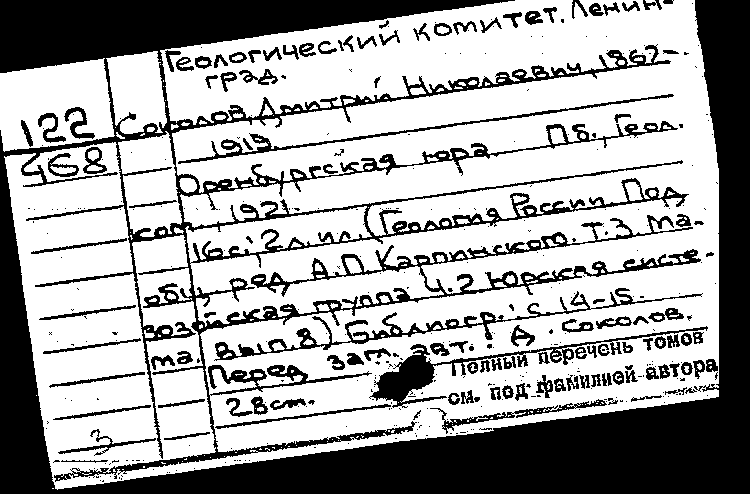 Геологический комитет. Ленин-
град.
122
468
Соколов, Дмитрий Николаевич, 1867-
1919.
Оренбургская юра. Пб., Геол.
ком., 1921.
16 с.; 2 л. ил. (Геология России. Под
общ. ред. А.П. Карпинского. Т.3. Ма-
зозойская группа. Ч.2 Юрская систе-
ма. Вып. 8) Библиогр.: с. 14-15.
Перед загл. авт.: Д. Соколов.
28 см.
Полный перечень томов
см. под фамилией автора
3